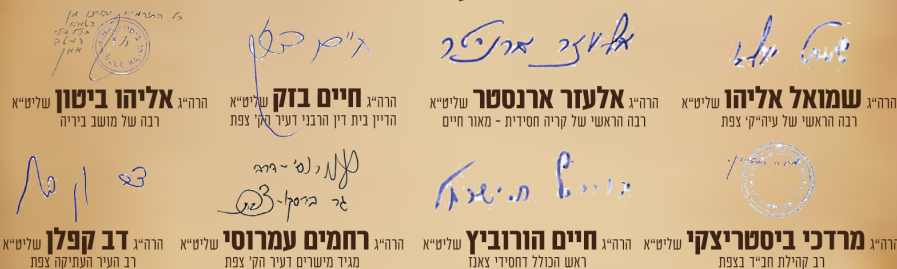 כל התורמים יבורכו מן
השמים
אמן
אלעזר ארנסטר
שמואל אליהו
הרה"ג שמואל אליהו שליט"א
רבה הראשי של עיה"ק צפת
הרה"ג אלעזר ארנסטר שליט"א
רבה הראשי של קריה חסידית - מאור חיים
הרה"ג חיים בזק שליט"א
הדיין בית דין הרבני דעיר הק' צפת
הרה"ג אליהו ביטון שליט"א
רבה של מושב ביריה
הרה"ג מרדכי ביסטריצקי שליט"א
רב קהילת חב"ד בצפת
הרה"ג חיים הורוביץ שליט"א
ראש הכולל דחסידי צאנז
הרה"ג רחמים עמרוסי שליט"א
מגיד מישרים דעיר הק' צפת
הרה"ג דב קפלן שליט"א
רב העיר העתיקה צפת